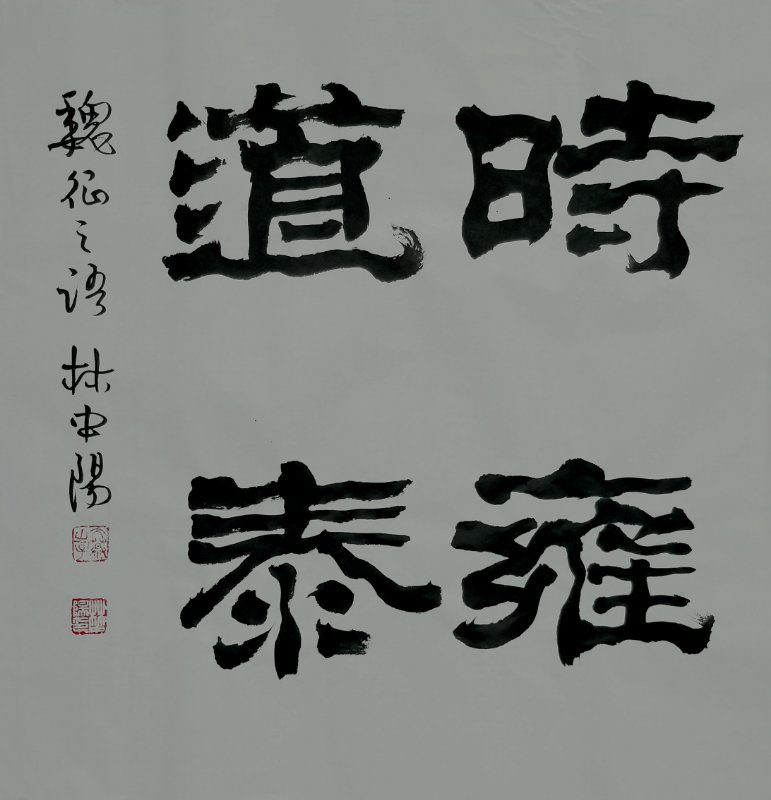 時雍
道泰
魏徴之語 林中陽